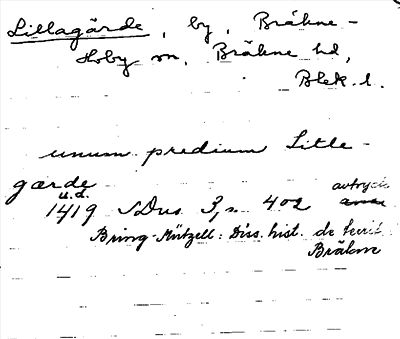 Lillagärde, by, Bräkne-
Hoby sn, Bräkne hd,
Blek. l.
unum predium Litle-
garde
u.d.
1419 SDns 3, s. 402 avtryck
Bring-Mützell: Diss. hist. de territ.
Bräkne